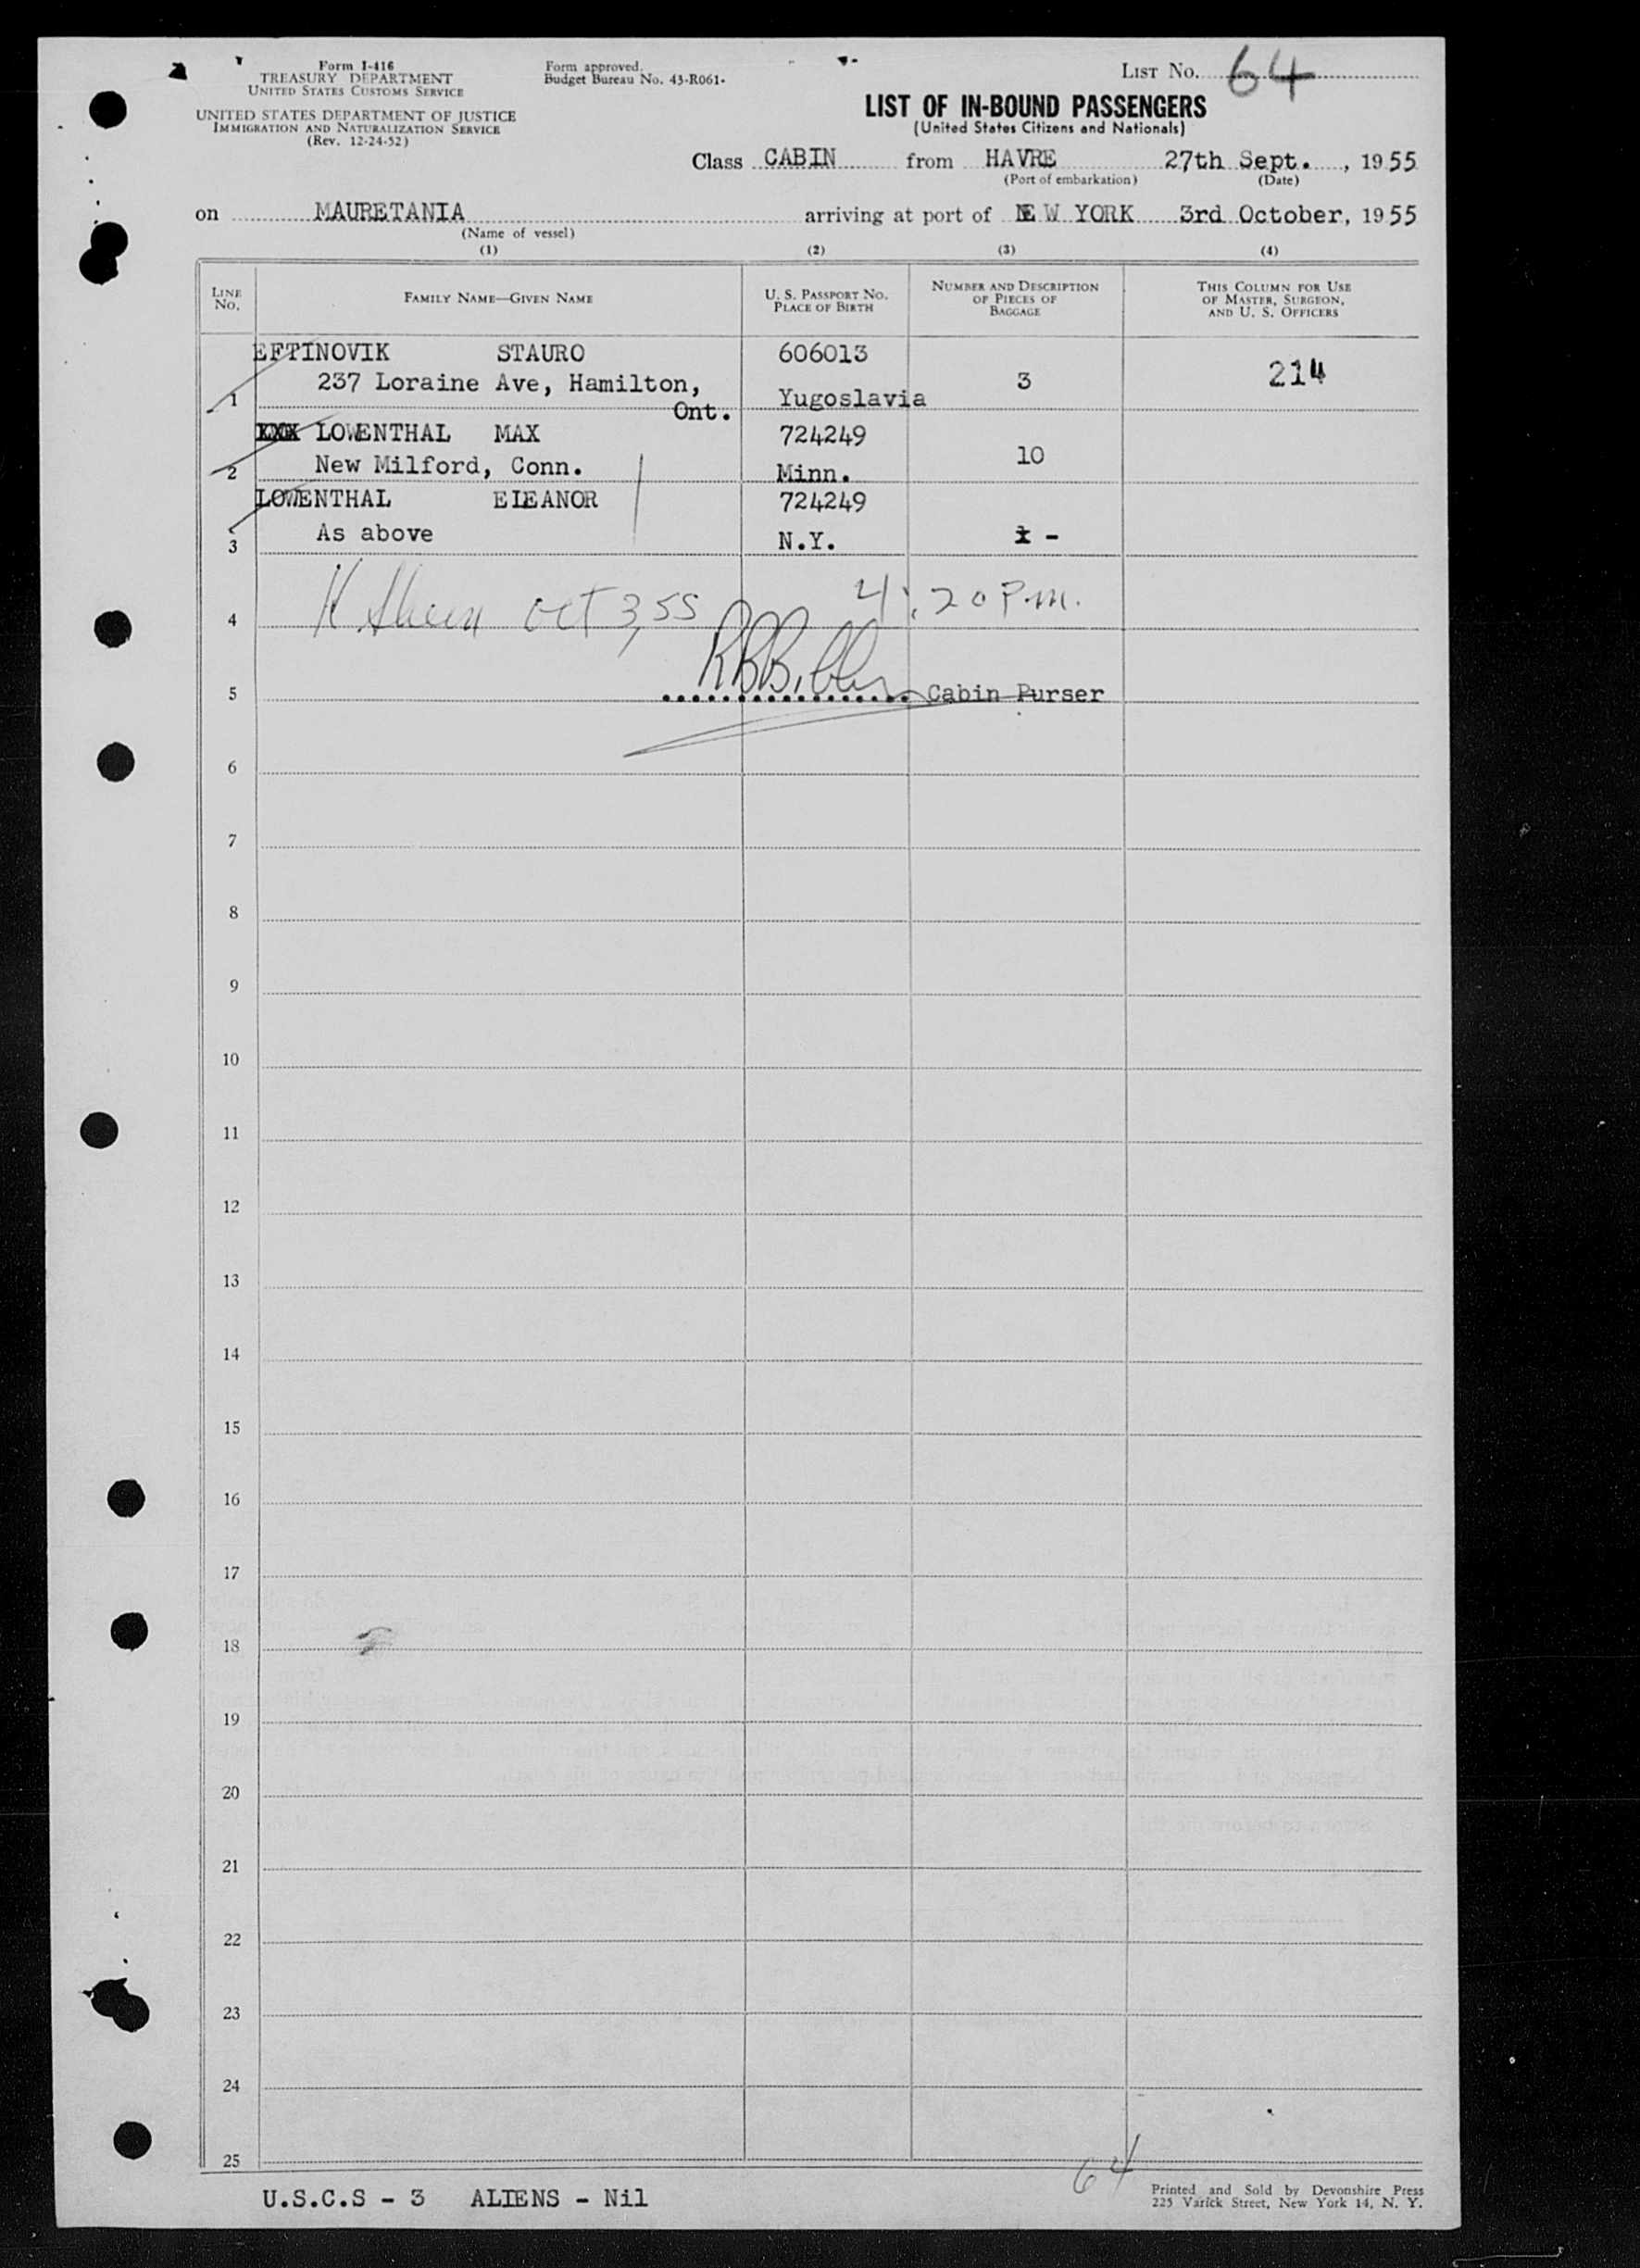 Form I-416
TREASURY DEPARTMENT
UNITED STATES CUSTOMS SERVICE
UNITED STATES DEPARTMENT OF JUSTICE
IMMIGRATION AND NATURALIZATION SERVICE
(Rev. 12-24-52)
Form approved.
Budget Bureau No. 43-R061-
LIST No. 64
LIST OF IN-BOUND PASSENGERS
(United States Citizens and Nationals)
Class CABIN from HAVRE 27th Sept., 1955
(Port of embarkation) (Date)
on MAURETANIA arriving at port of NEW YORK 3rd October, 1955
(Name of vessel)
(1) (2) (3) (4)
LINE No. FAMILY NAME—GIVEN NAME U. S. PASSPORT No. PLACE OF BIRTH NUMBER AND DESCRIPTION OF PIECES OF BAGGAGE THIS COLUMN FOR USE OF MASTER, SURGEON, AND U. S. OFFICERS
EFTINOVIK STAURO 606013
237 Loraine Ave, Hamilton, 3 214
1 Ont. Yugoslavia
LOWENTHAL MAX 724249
2 New Milford, Conn. Minn. 10
LOWENTHAL ELEANOR 724249
As above N.Y. -
3
4 Oct 3, 55 4:20 P.M.
5 Cabin Purser
6
7
8
9
10
11
12
13
14
15
16
17
18
19
20
21
22
23
24
25
64
U.S.C.S - 3 ALIENS - Nil
Printed and Sold by Devonshire Press
225 Varick Street, New York 14, N. Y.